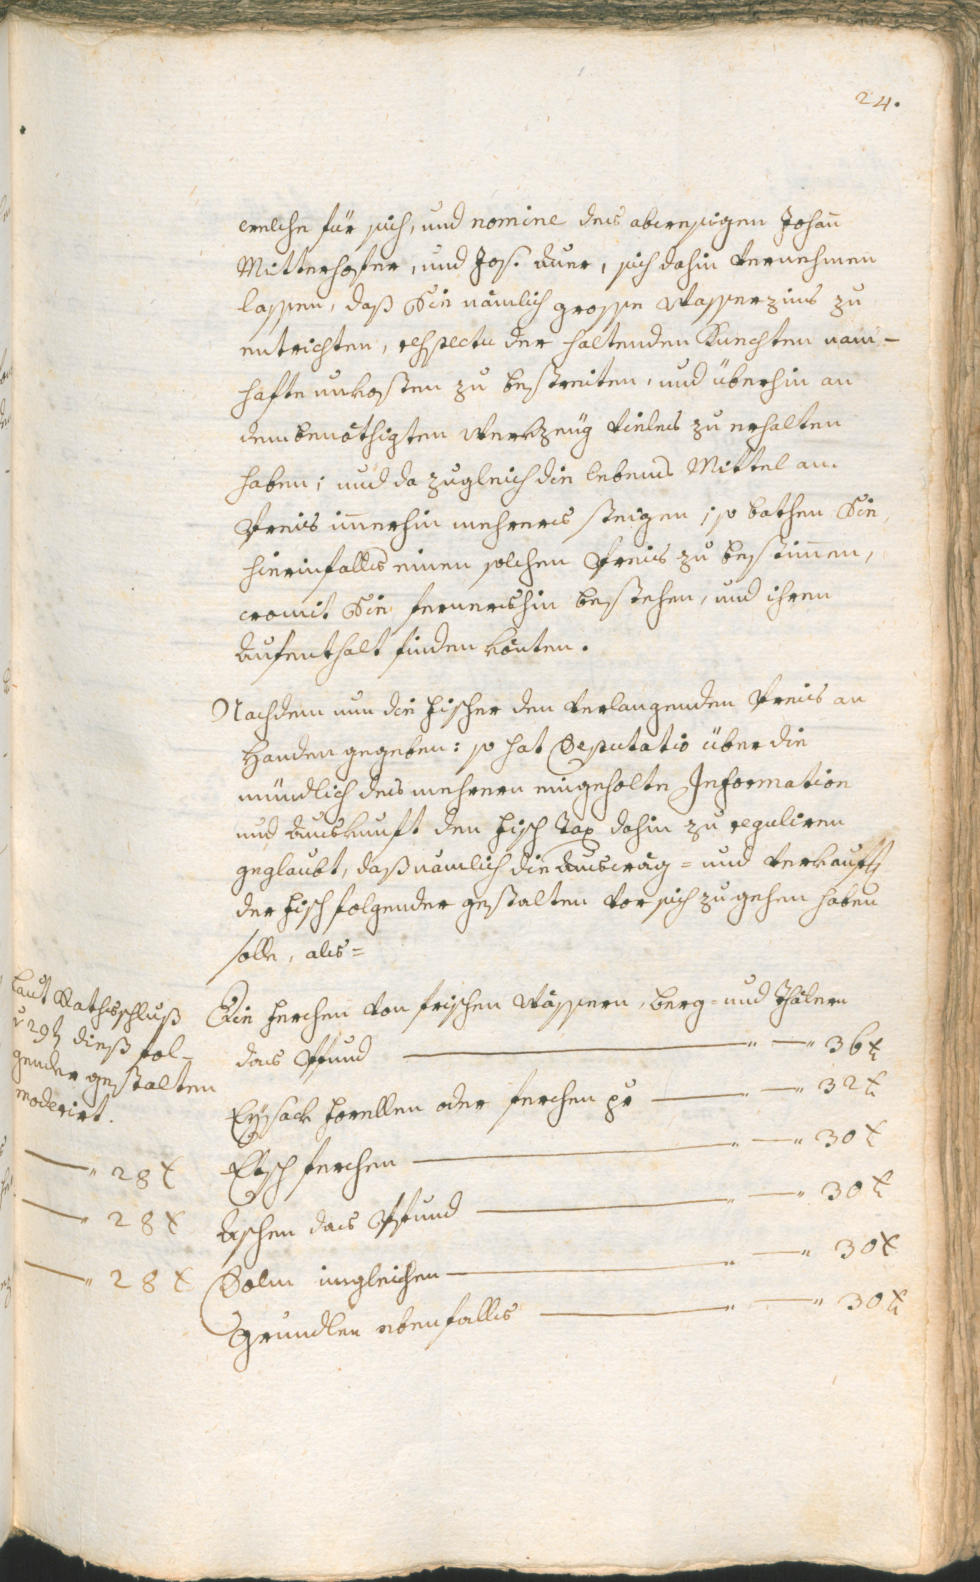 24.
welche für sich, und nomine des abwesigen Johañ
Mitterhofer, und Jos. Auer, sich dahin vernehmen
lassen, daß Sie nämlich grosse Wasserzins zu
entrichten, respectu der haltenden Knechten nam-
hafte unkosten zu bestreiten, und überhin an
dembenöthigten Werkzeüg vieles zu erhalten
haben; und da zugleich die lebens Mittel am
Preis immerhin mehrers steigen; so bathen Sie,
hierinfalls einen solchen Preis zu bestim̄en,
womit Sie fernershin bestehen, und ihren
Aufenthalt finden könten.
Nachdem nun die Fischer den verlangenden Preis an
Handen gegeben: so hat Deputatio über die
mündlich des mehrern eingeholte Information
und Auskunft den Fisch Tax dahin zu reguliren
geglaubt, daß nämlich die Auswäg- und Verkauff
der Fisch folgender gestalten vor sich zu gehen haben
solle, als=
Laut Rathsschluß
29t dieß fol-
gender gestalten
moderirt.
Die Ferchen von frischen Wässern, berg- und Thälern
das Pfund — " — " 36 x
Eysack Forellen oder Ferchen pr — " — " 32 x
— " 28 x Etsch Ferchen — " — " 30 x
— " 28 x Aschen das Pfund — " — " 30 x
— " 28 x Dolm imgleichen — " — " 30 x
Grundlen ebenfalls — " — " 30 x